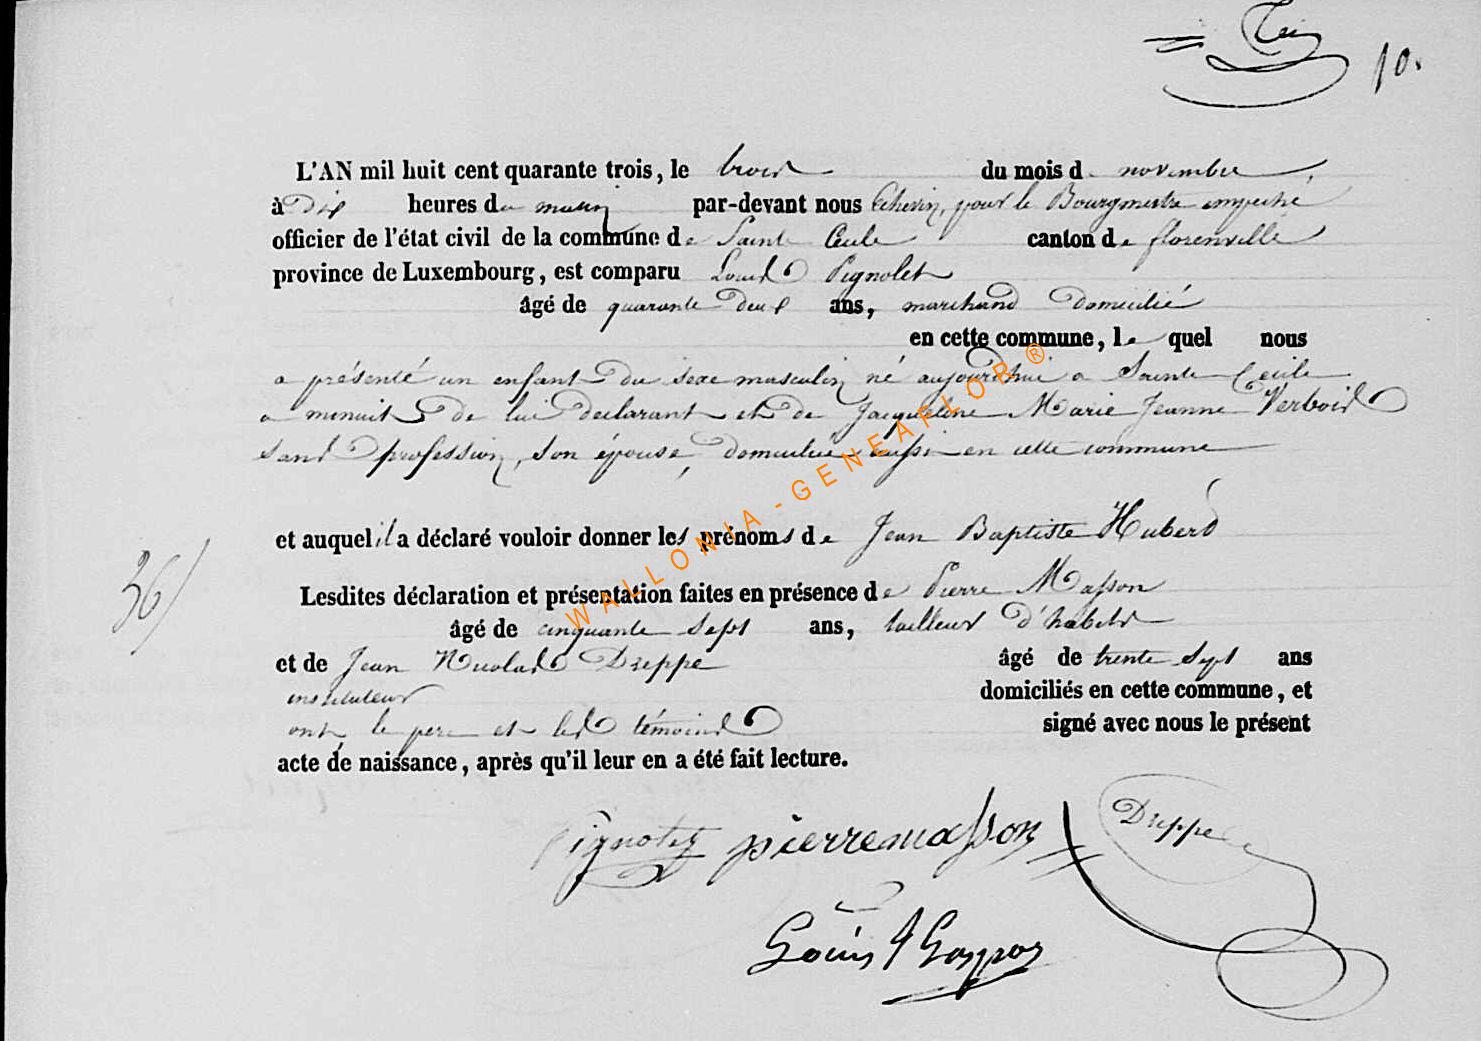 10.
L'AN mil huit cent quarante trois, le trois du mois de novembre
à Dix heures du matin par-devant nous Echevin, pour le Bourgmestre empeché
officier de l'état civil de la commune de Sainte Cecile canton de florenville
province de Luxembourg, est comparu Louis Pignolet
âgé de quarante Deux ans, marchand Domicilié
en cette commune, le quel nous
a présenté un enfant Du sexe masculin né aujourd'hui a Sainte Cecile
a minuit De lui Declarant et De Jacqueline Marie Jeanne Verboix
sans profession, son épouse, domiciliée aussi en cette commune
et auquel il a déclaré vouloir donner les prénoms de Jean Baptiste Hubert
36
Lesdites déclaration et présentation faites en présence de Pierre Masson
âgé de cinquante Sept ans, tailleur d'habits
et de Jean Nicolas Dreppe âgé de trente Sept ans
instituteur domiciliés en cette commune, et
ont le pere et les témoins signé avec nous le présent
acte de naissance, après qu'il leur en a été fait lecture.
Pignolet pierre masson Dreppe
Louis
WALLONIA-GENEAFLOR®